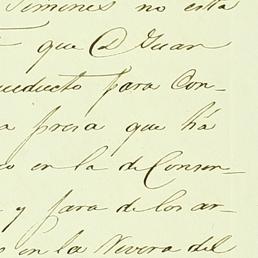 Jimenes no está
que D Juan
ueducto para Con-
a presa que há
o en la de Conser-
y para de los ar-
s en la Nevera del